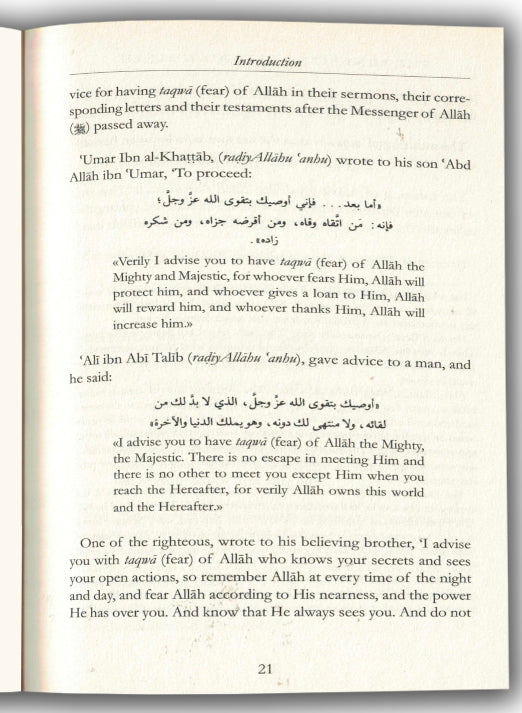 Introduction
vice for having taqwā (fear) of Allāh in their sermons, their corre-
sponding letters and their testaments after the Messenger of Allāh
(ﷺ) passed away.
ʿUmar Ibn al-Khaṭṭāb, (raḍiyAllāhu ʿanhu) wrote to his son ʿAbd
Allāh ibn ʿUmar, ‘To proceed:
«أما بعد... فإني أوصيك بتقوى الله عزَّ وجلَّ؛
فإنه: مَن اتَّقاه وقاه، ومن أقرضه جزاه، ومن شكره
زاده».
«Verily I advise you to have taqwā (fear) of Allāh the
Mighty and Majestic, for whoever fears Him, Allāh will
protect him, and whoever gives a loan to Him, Allāh
will reward him, and whoever thanks Him, Allāh will
increase him.»
ʿAlī ibn Abī Talīb (raḍiyAllāhu ʿanhu), gave advice to a man, and
he said:
«أوصيك بتقوى الله عزَّ وجلَّ، الذي لا بدَّ لك من
لقائه، ولا منتهى لك دونه، وهو يملك الدنيا والآخرة»
«I advise you to have taqwā (fear) of Allāh the Mighty,
the Majestic. There is no escape in meeting Him and
there is no other to meet you except Him when you
reach the Hereafter, for verily Allāh owns this world
and the Hereafter.»
One of the righteous, wrote to his believing brother, ‘I advise
you with taqwā (fear) of Allāh who knows your secrets and sees
your open actions, so remember Allāh at every time of the night
and day, and fear Allāh according to His nearness, and the power
He has over you. And know that He always sees you. And do not
21